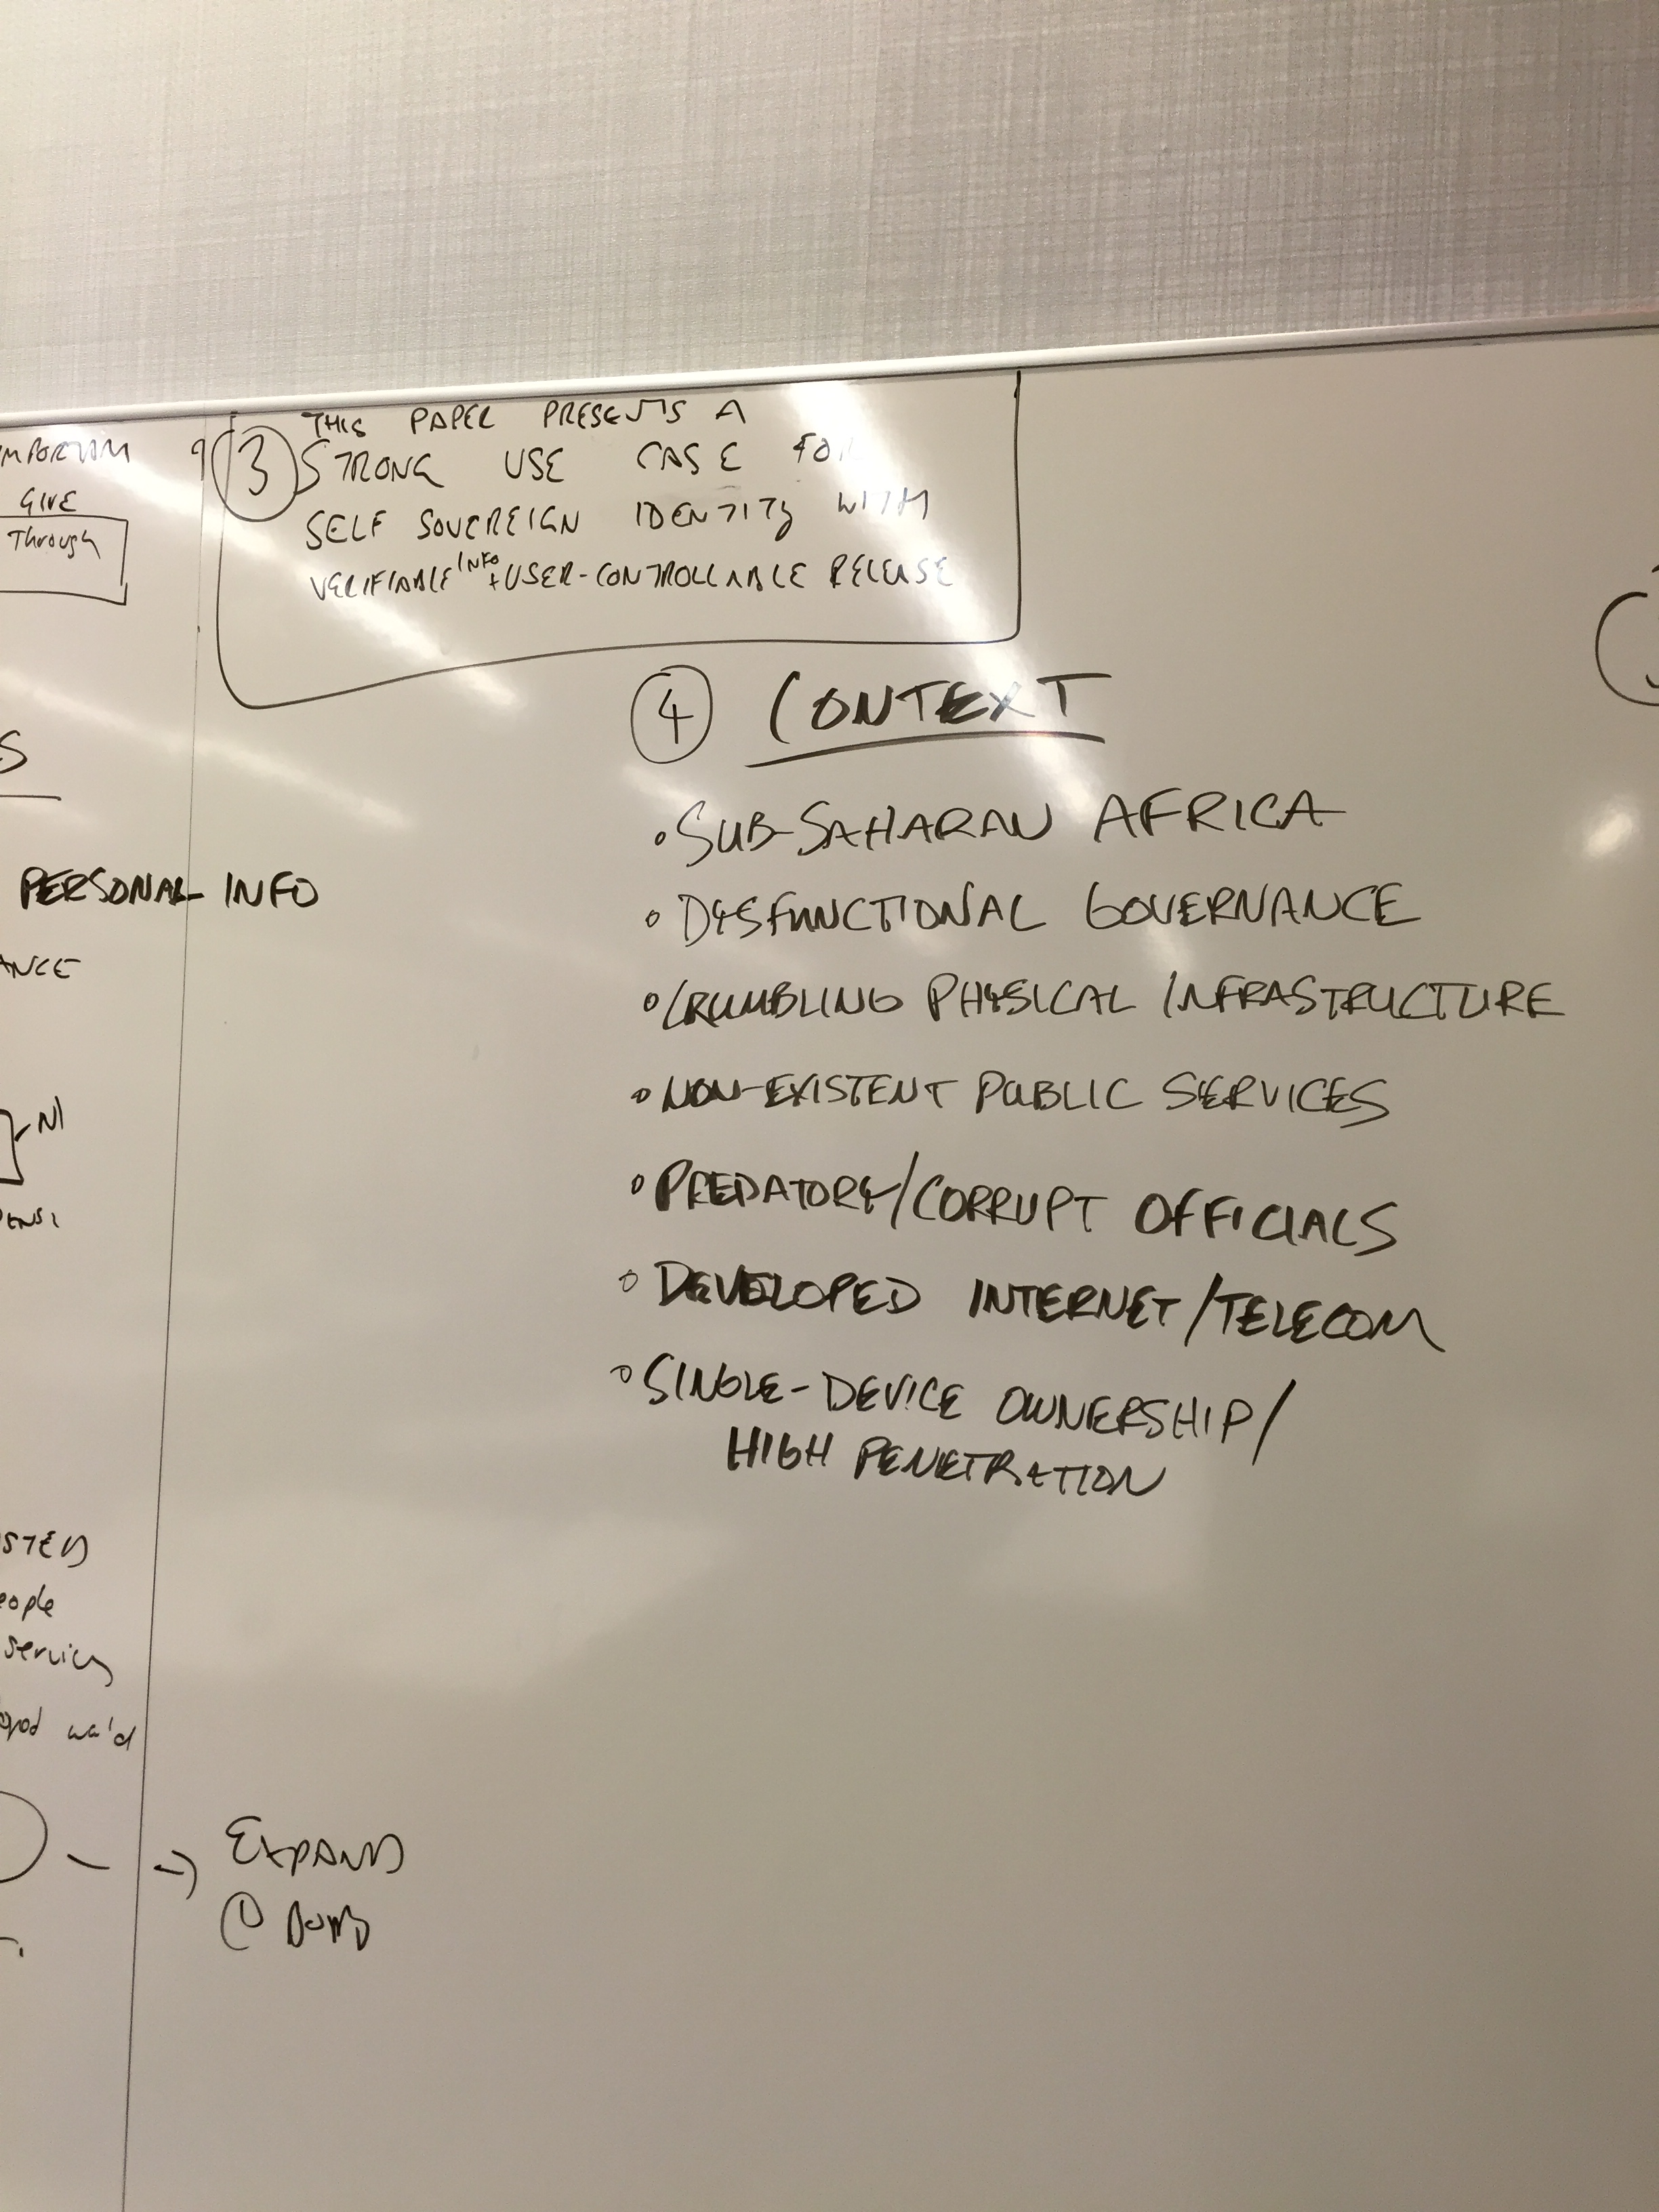 GIVE
Through
PERSONAL INFO
ANCE
NI
STED
eople
wa'd
EXPAND
3
THIS PAPER PRESENTS A
STRONG USE CASE FOR
SELF SOVEREIGN IDENTITY WITH
VERIFIABLE INFO + USER-CONTROLLABLE RELEASE
4 CONTEXT
• SUB-SAHARAN AFRICA
• DYSFUNCTIONAL GOVERNANCE
• CRUMBLING PHYSICAL INFRASTRUCTURE
• NON-EXISTENT PUBLIC SERVICES
• PREDATORY/CORRUPT OFFICIALS
• DEVELOPED INTERNET/TELECOM
• SINGLE-DEVICE OWNERSHIP/
HIGH PENETRATION